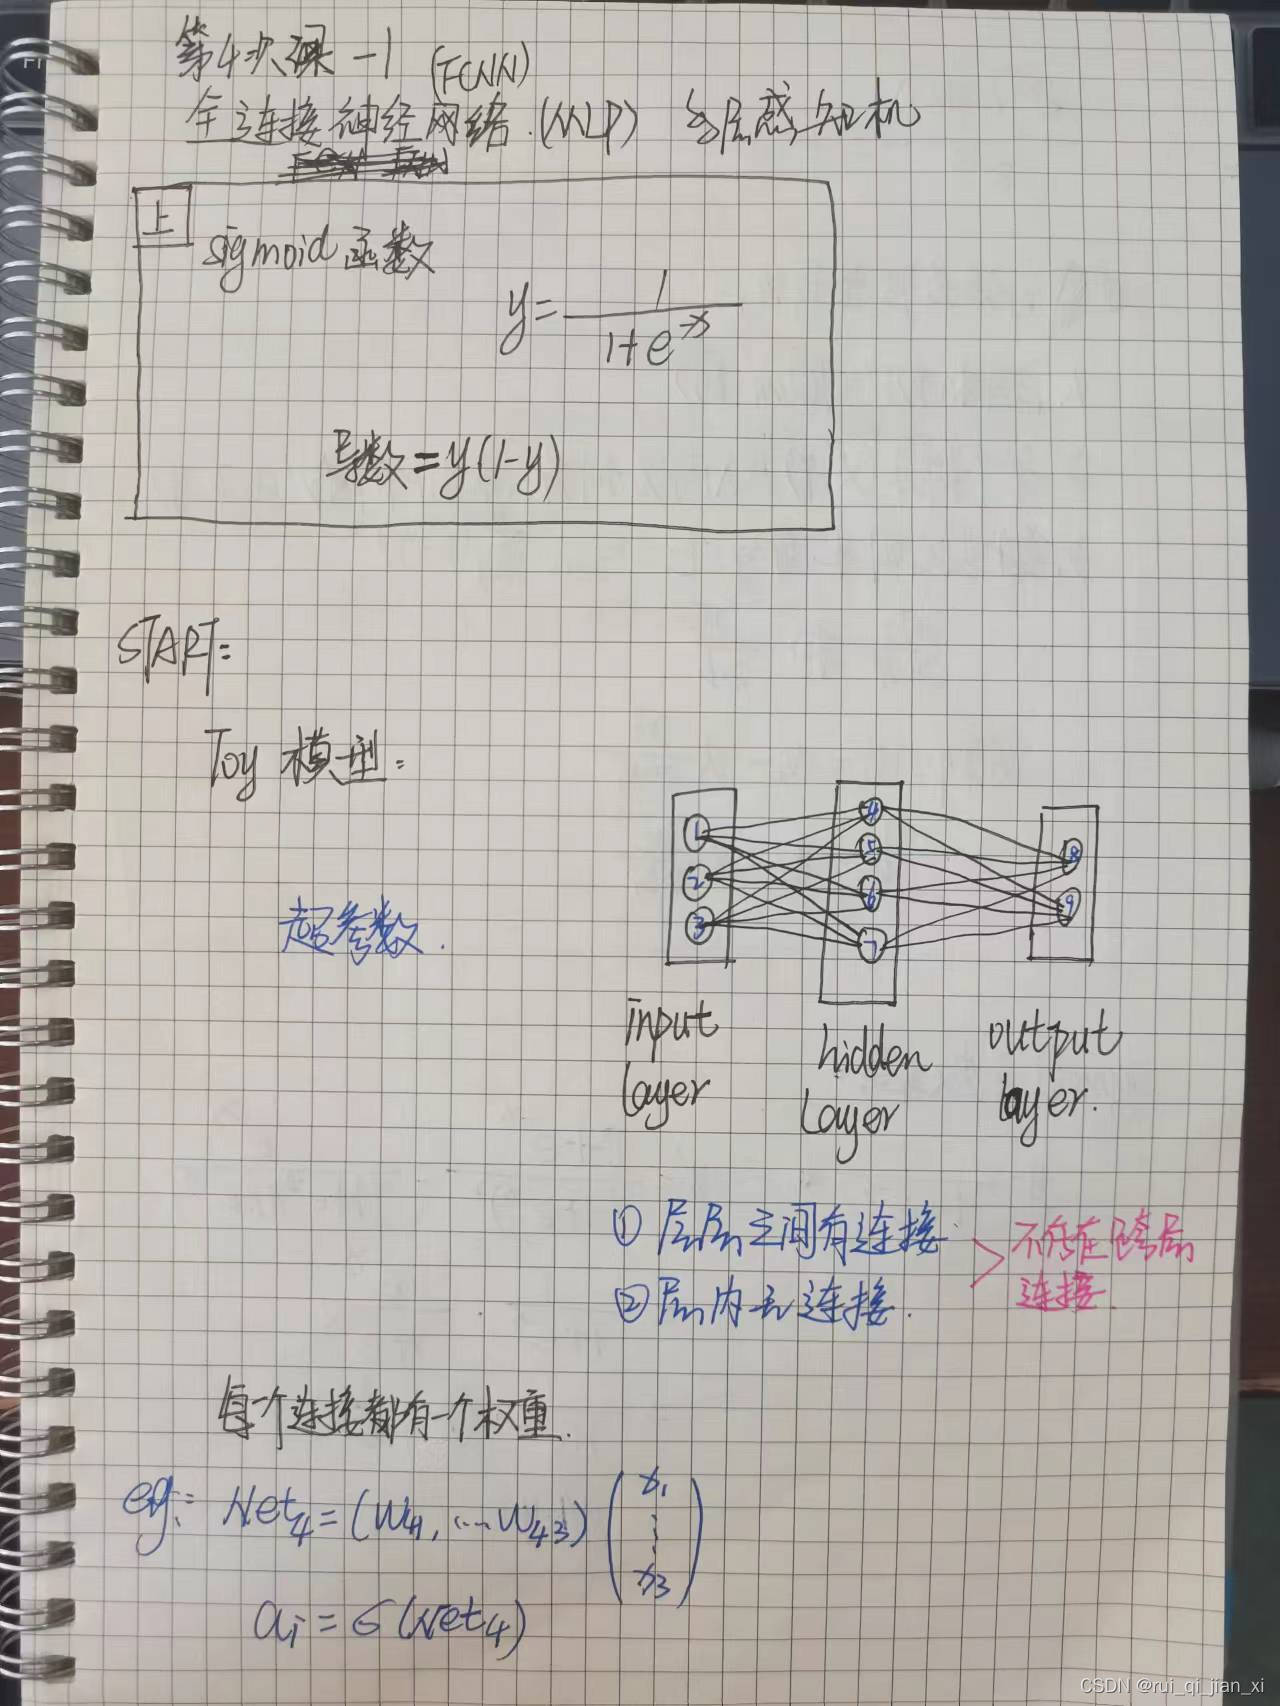 第4次课-1 (FCNN)
全连接神经网络.(MLP) 多层感知机
上
sigmoid 函数
y = 1 / (1+e^-x)
导数 = y(1-y)
START:
Toy 模型:
超参数.
1 4
2 5 8
3 6 9
7
input layer
hidden layer
output layer.
① 层层之间有连接
② 层内无连接.
> 不存在跨层
连接.
每个连接都有一个权重.
eg: Net₄ = (W₄₁, ... W₄₃) (x₁ ⋮ x₃)
aᵢ = σ(Net₄)
CSDN @rui_qi_jian_xi